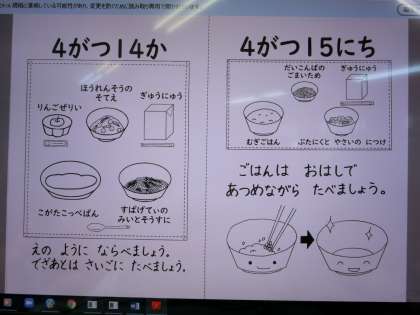 4がつ14か
りんごぜりい
ほうれんそうの
そてえ
ぎゅうにゅう
こがたこっぺぱん
すぱげてぃの
みいとそうすに
えの ように ならべましょう。
でざあとは さいごに たべましょう。
4がつ15にち
だいこんばの
ごまいため
ぎゅうにゅう
むぎごはん
ぶたにくと やさいの につけ
ごはんは おはしで
あつめながら たべましょう。